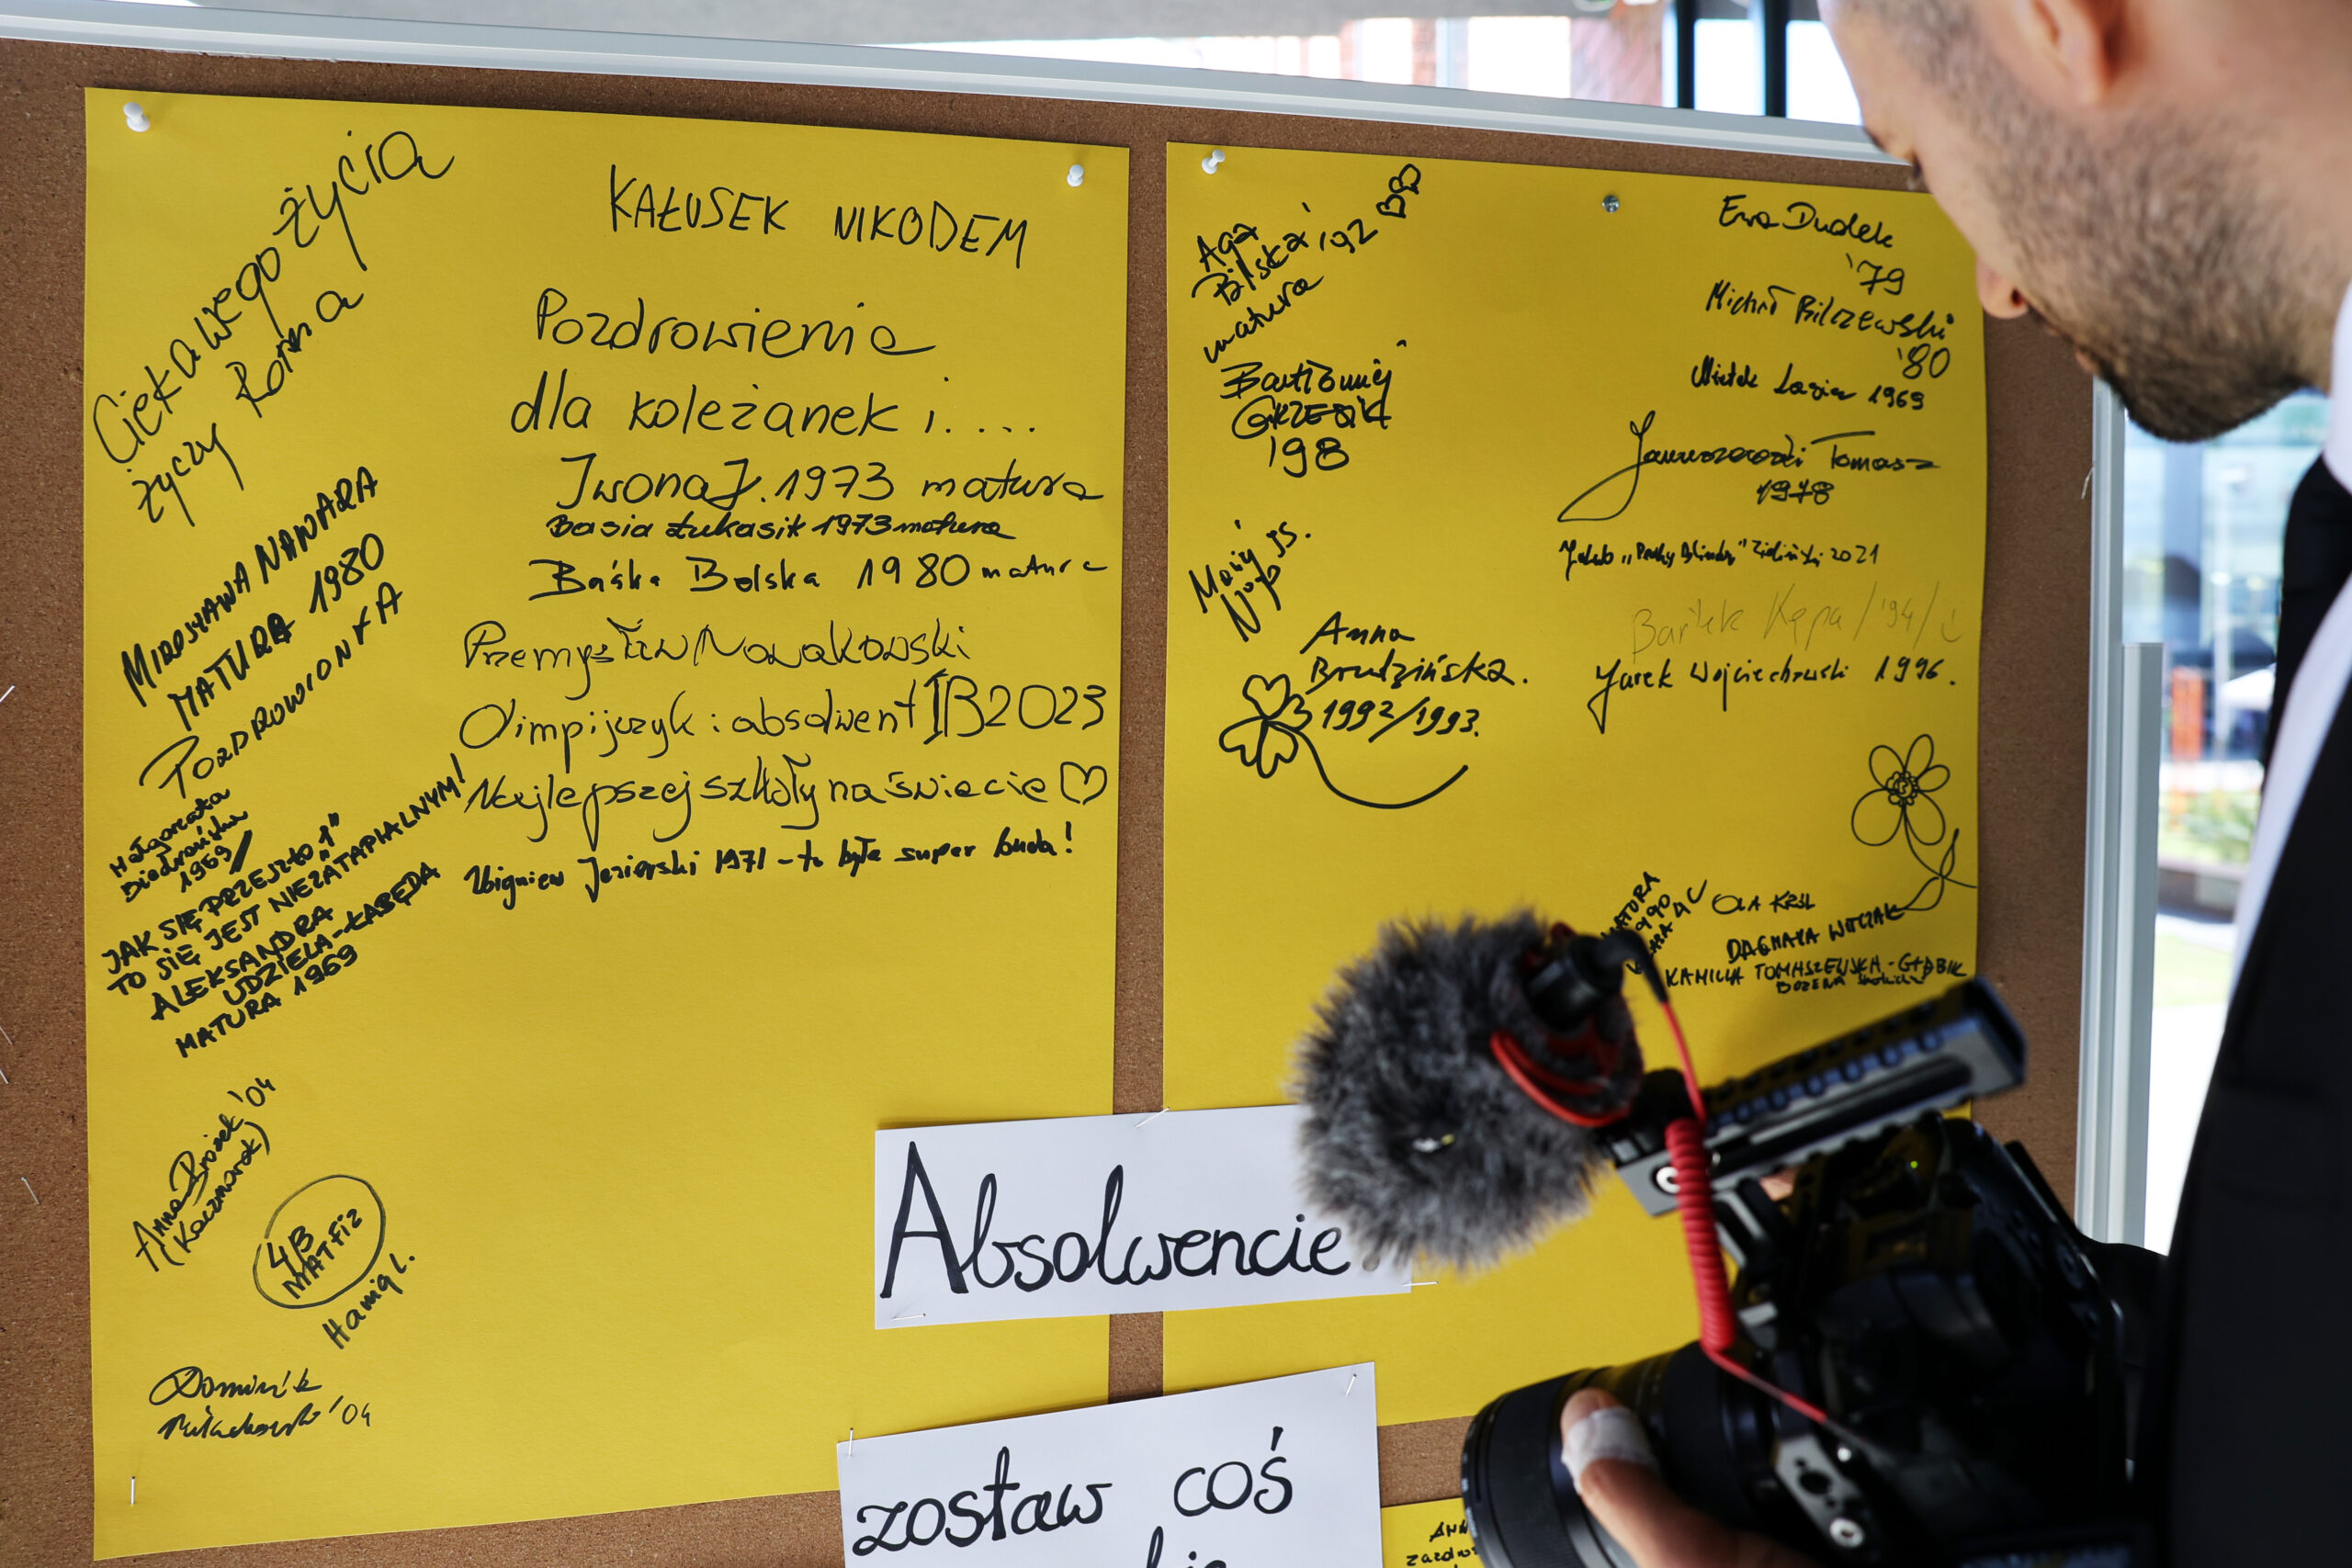 Ciekawego życia
życzy Roma
KAŁUSEK NIKODEM
Pozdrowienia
dla koleżanek i....
Iwona J. 1973 matura
Basia Łukasik 1973 matura
Baśka Bolska 1980 matura
Przemysław Nowakowski
Olimpijczyk i absolwent IB2023
Najlepszej szkoły na świecie
Zbigniew Jezierski 1971 - to była super buda!
MIROSŁAWA NAWARA
MATURA 1980
POZDROWIONKA
Małgorzata
1969
JAK SIĘ PRZESZŁO "1"
TO SIĘ JEST NIEZATAPIALNYM!
ALEKSANDRA
UDZIELA-ŁABĘDA
MATURA 1969
Anna Brożek '04
(Kaczmarek)
4B
MATFIZ
Hania L.
Dominik
'04
Aga
Bilska '92
matura
Bartłomiej
GRZESIK
'98
Anna
Brudzińska.
1992/1993.
Ewa Dudek
'79
Michał Bilczewski
'80
Mietek 1969
Tomasz
1978
Jakub „Peaky Blinder" Zieliński 2021
Bartek Kępa /'94/
Jarek Wojciechowski 1996.
MATURA
1990
4C
OLA KRÓL
DAGMARA WITCZAK
KAMILLA TOMASZEWSKA-GŁĄBIK
BOŻENA
Absolwencie
zostaw coś